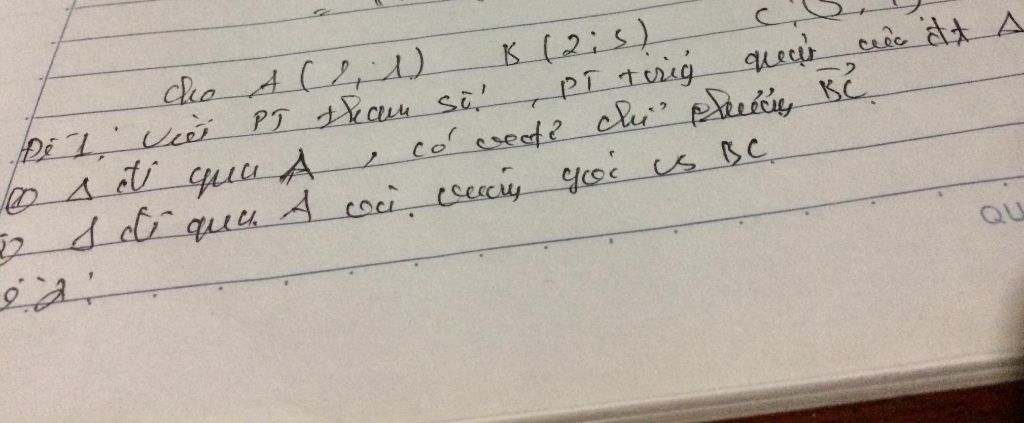 Cho A(1; 1) B(2; 5) C(
Đề 1: Viết PT tham số, PT tổng quát các đt Δ
a) Δ đi qua A, có vectơ chỉ phương BC
Δ đi qua A vuông góc vs BC
2:
QU